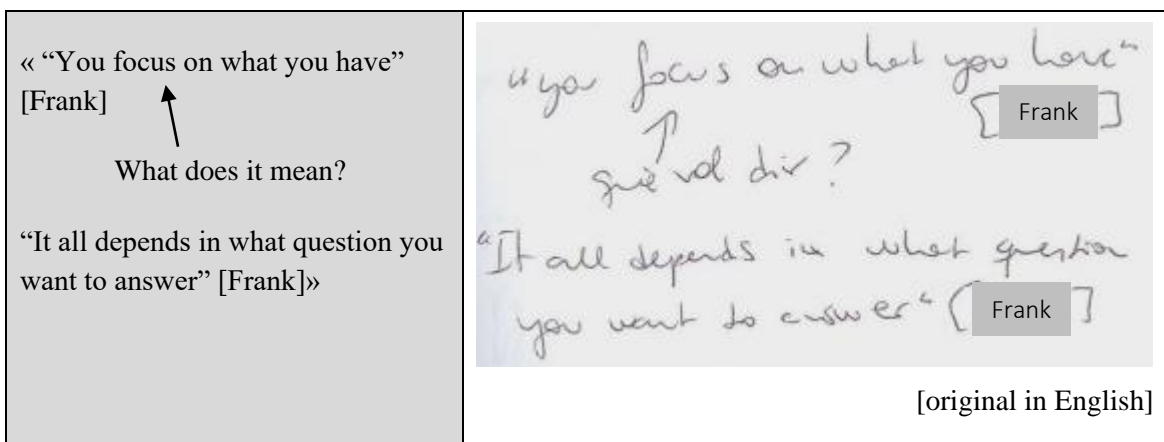 « “You focus on what you have”
[Frank]
What does it mean?
“It all depends in what question you
want to answer” [Frank]»
"you focus on what you have"
[Frank]
què vol dir?
"It all depends in what question
you want to answer" [Frank]
[original in English]